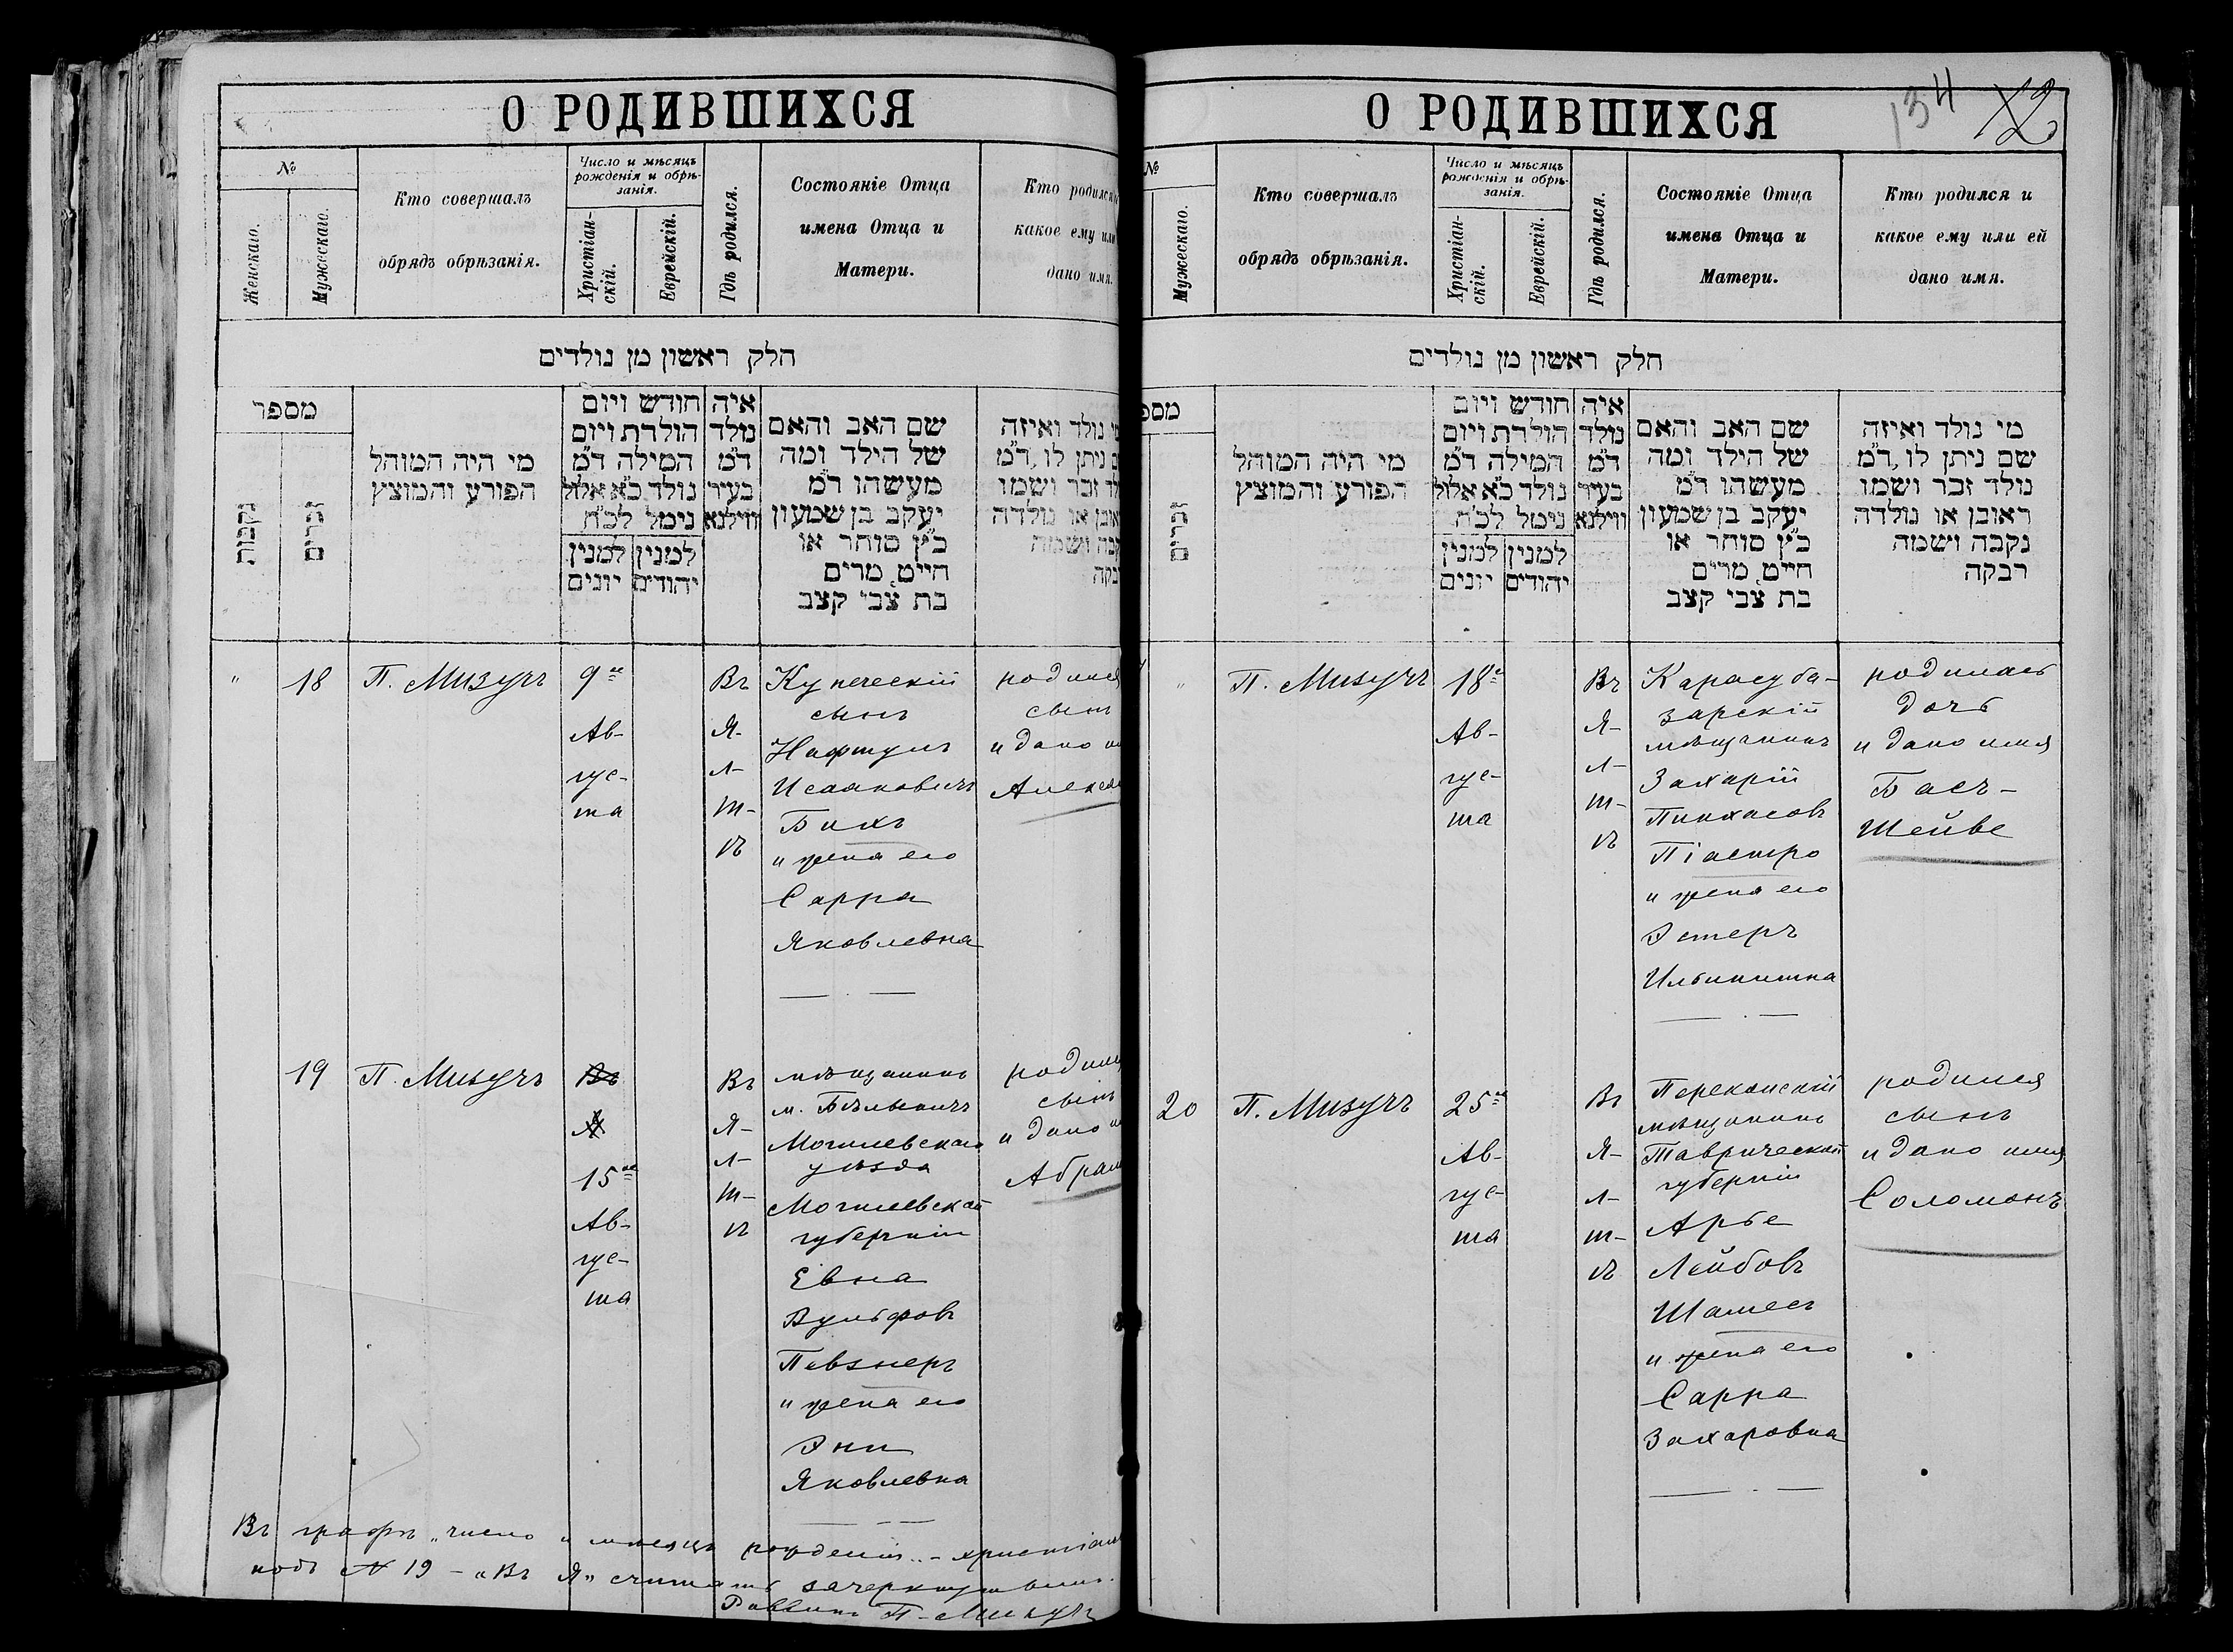 О РОДИВШИХСЯ
№
Женскаго.
Мужескаго.
Кто совершалъ
обрядъ обрѣзанія.
Число и мѣсяцъ
рожденія и обрѣ-
занія.
Христіан-
скій.
Еврейскій.
Гдѣ родился.
Состояніе Отца
имена Отца и
Матери.
Кто родился
какое ему или
дано имя.
חלק ראשון מן נולדים
מספר
נקבות
זכרים
מי היה המוהל
הפורע והמוצץ
חודש ויום
הולדת ויום
המילה ד״מ
נולד כ״א אלול
נימל לכ״ח
למנין
יונים
למנין
יהודים
איה
נולד
ד״מ
בעיר
ווילנא
שם האב והאם
של הילד ומה
מעשהו ד״מ
יעקב בן שמעון
כ״ץ סוחר או
חייט, מרים
בת צבי קצב
נולד ואיזה
ניתן לו, ד״מ
זכר ושמו
או נולדה
ושמה
18
П. Мизучъ
9го
Ав-
гус-
та
Въ
Я-
л-
т-
ѣ
Купеческій
сынъ
Нафтулъ
Исааковичъ
Бихъ
и жена его
Сарра
Яковлевна
родился
сынъ
и дано
19
П. Мизучъ
Въ
Я
15го
Ав-
гус-
та
Въ
Я-
л-
т-
ѣ
мѣщанинъ
м. Бѣлыничъ
Могилевскаго
уѣзда
Могилевской
губерніи
Евна
Вульфовъ
Певзнеръ
и жена его
Эни
Яковлевна
родился
сынъ
и дано
Абрам
Въ графѣ „число и мѣсяцъ рожденія" - христіан
подъ № 19 - „Въ Я" считать зачеркнутымъ.
Раввинъ П. Мизучъ
О РОДИВШИХСЯ
134
12
№
Мужескаго.
Кто совершалъ
обрядъ обрѣзанія.
Число и мѣсяцъ
рожденія и обрѣ-
занія.
Христіан-
скій.
Еврейскій.
Гдѣ родился.
Состояніе Отца
имена Отца и
Матери.
Кто родился и
какое ему или ей
дано имя.
חלק ראשון מן נולדים
זכרים
מי היה המוהל
הפורע והמוצץ
חודש ויום
הולדת ויום
המילה ד״מ
נולד כ״א אלול
נימל לכ״ח
למנין
יונים
למנין
יהודים
איה
נולד
ד״מ
בעיר
ווילנא
שם האב והאם
של הילד ומה
מעשהו ד״מ
יעקב בן שמעון
כ״ץ סוחר או
חייט, מרים
בת צבי קצב
מי נולד ואיזה
שם ניתן לו, ד״מ
נולד זכר ושמו
ראובן או נולדה
נקבה ושמה
רבקה
П. Мизучъ
18го
Ав-
гус-
та
Въ
Я-
л-
т-
ѣ
Карасуба-
зарскій
мѣщанинъ
Захарій
Пинхасовъ
Піастро
и жена его
Эстеръ
Ильинишна
родилась
дочь
и дано имя
Басъ-
Шейве
20
П. Мизучъ
25го
Ав-
гус-
та
Въ
Я-
л-
т-
ѣ
Перекопскій
мѣщанинъ
Таврической
губерніи
Арье
Лейбовъ
Шамесъ
и жена его
Сарра
Захаровна
родился
сынъ
и дано имя
Соломонъ